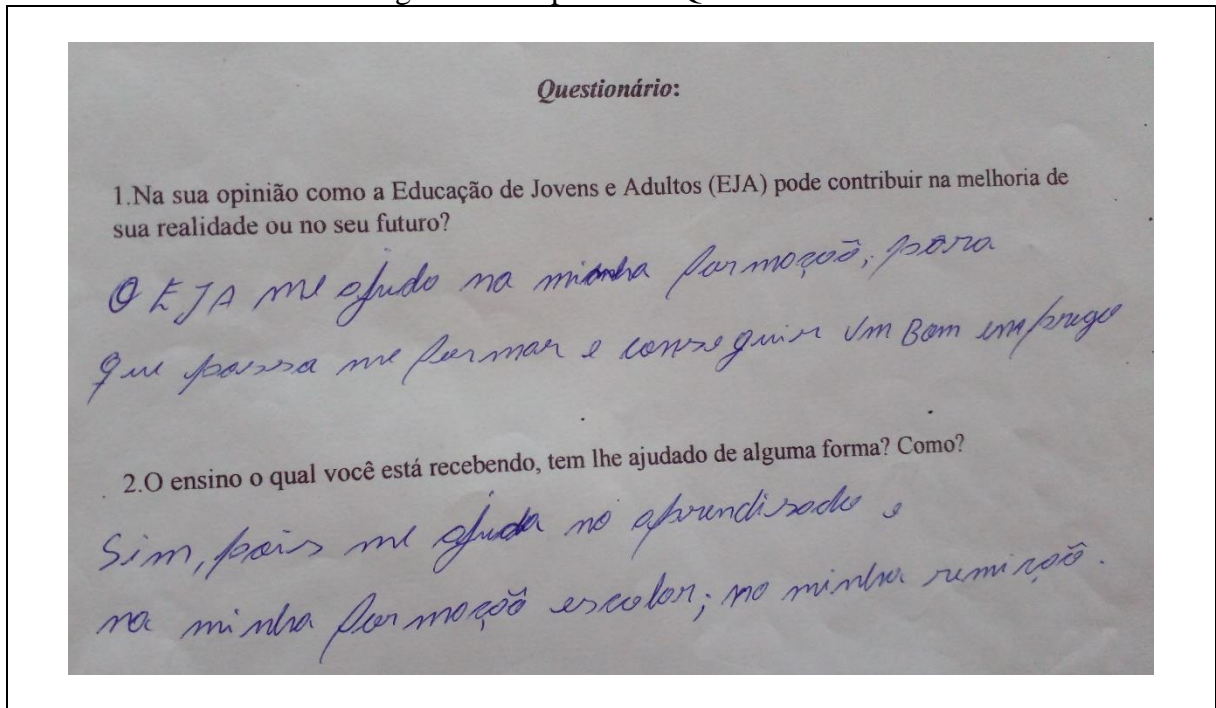 Questionário:
1.Na sua opinião como a Educação de Jovens e Adultos (EJA) pode contribuir na melhoria de
sua realidade ou no seu futuro?
O EJA me ajuda na minha formação, para
que possa me formar e conseguir um Bom emprego
2.O ensino o qual você está recebendo, tem lhe ajudado de alguma forma? Como?
Sim, pois me ajuda no aprendisado e
na minha formação escolar; na minha remição.